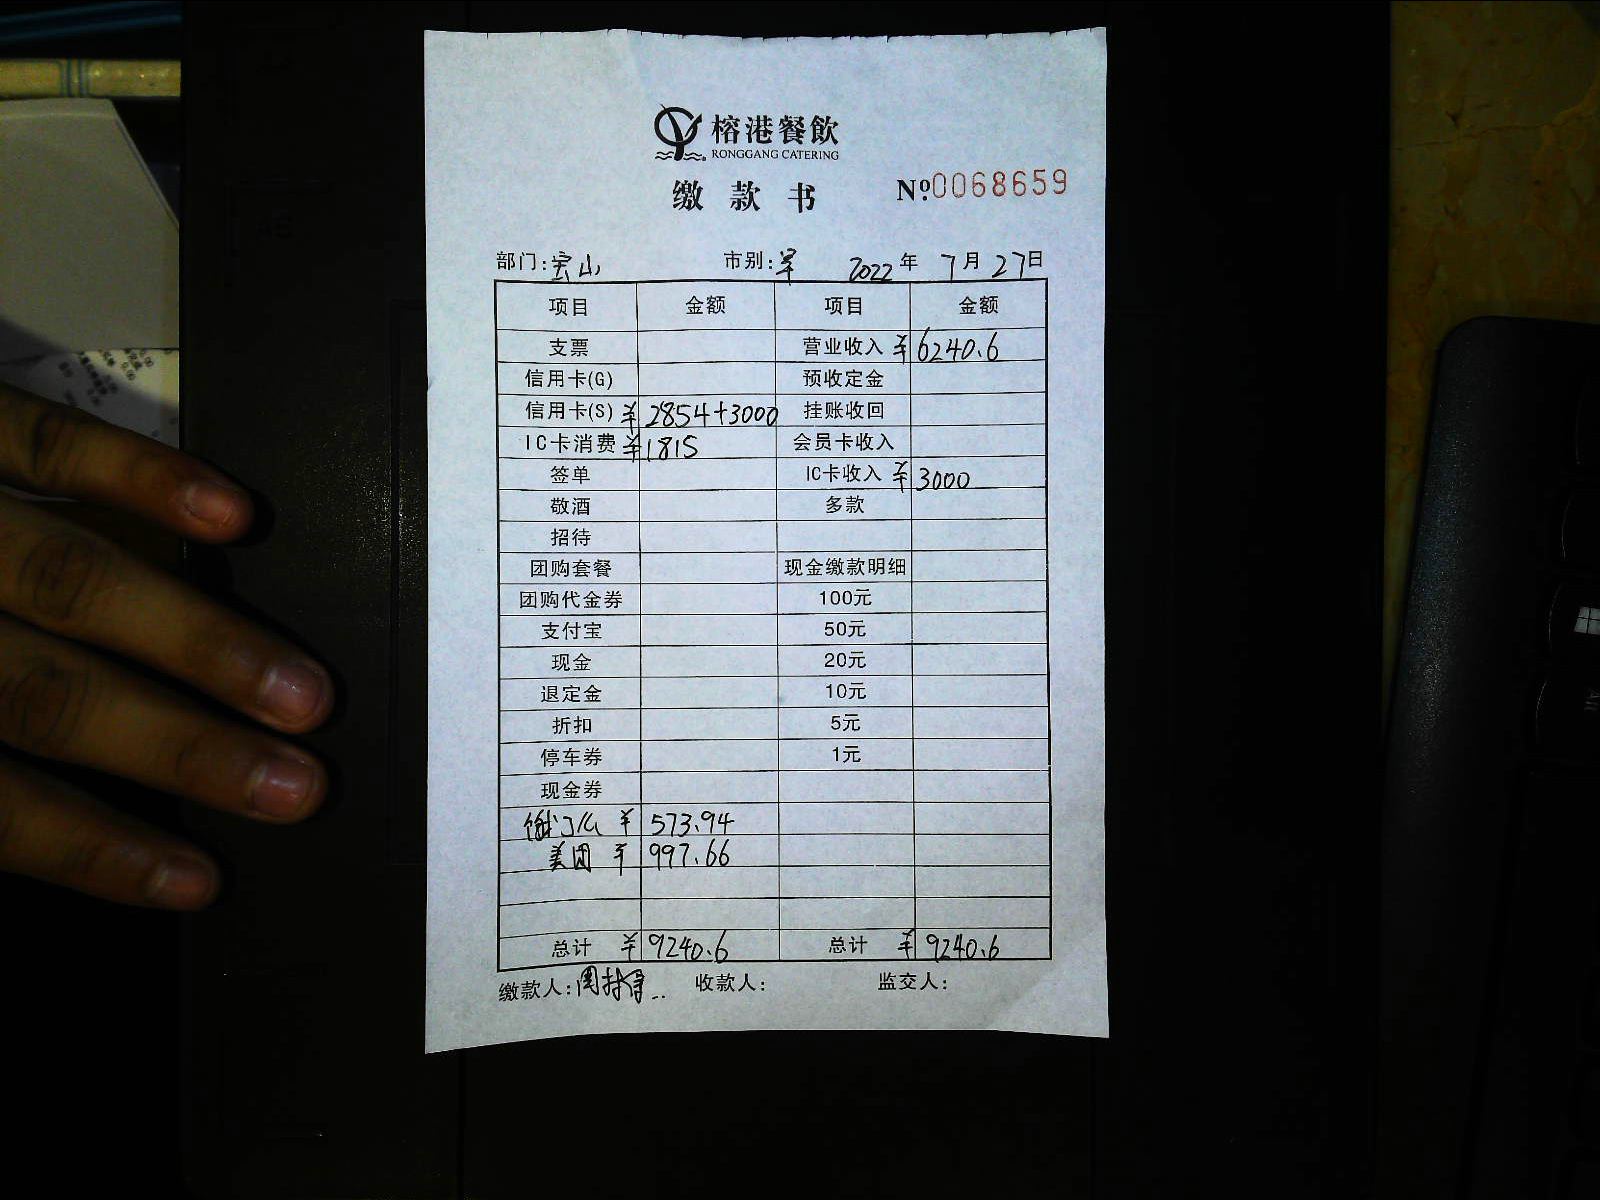 榕港餐飲
RONGGANG CATERING
缴款书 №0068659
部门:宝山 市别:早 2022年7月27日
项目 金额 项目 金额
支票 营业收入 ¥6240.6
信用卡(G) 预收定金
信用卡(S) ¥2854+3000 挂账收回
IC卡消费 ¥1815 会员卡收入
签单 IC卡收入 ¥3000
敬酒 多款
招待
团购套餐 现金缴款明细
团购代金券 100元
支付宝 50元
现金 20元
退定金 10元
折扣 5元
停车券 1元
现金券
饿了么 ¥573.94
美团 ¥997.66
总计 ¥9240.6 总计 ¥9240.6
缴款人:周 收款人: 监交人: